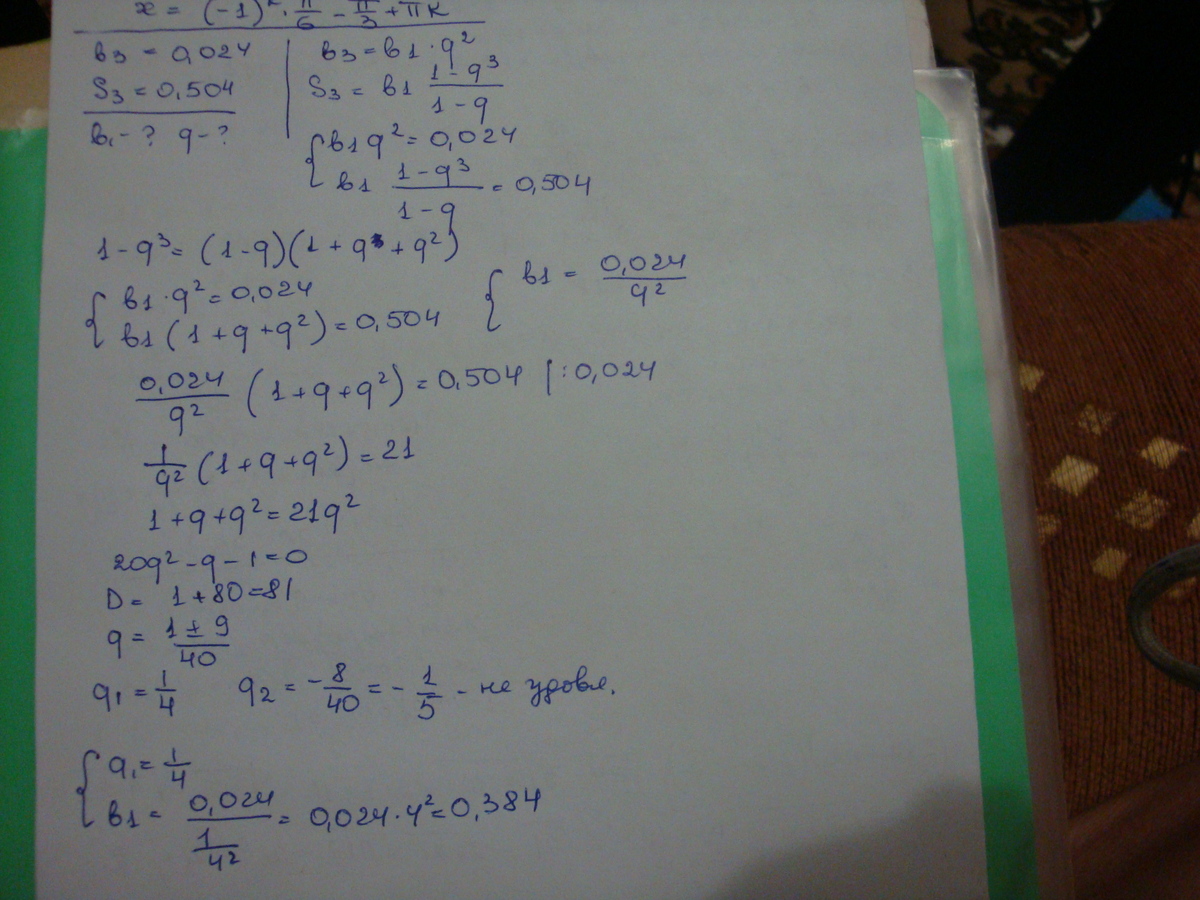 x = (-1)^k · π/6 - π/3 + πk
в3 = 0,024
S3 = 0,504
в1 - ? q - ?
в3 = в1 · q²
S3 = в1 (1 - q³)/(1 - q)
{ в1 q² = 0,024
в1 (1 - q³)/(1 - q) = 0,504
1 - q³ = (1 - q)(1 + q + q²)
{ в1 · q² = 0,024
в1 (1 + q + q²) = 0,504
{ в1 = 0,024/q²
0,024/q² (1 + q + q²) = 0,504 | : 0,024
1/q² (1 + q + q²) = 21
1 + q + q² = 21q²
20q² - q - 1 = 0
D = 1 + 80 = 81
q = (1 ± 9)/40
q1 = 1/4 q2 = -8/40 = -1/5 - не удовл.
{ q1 = 1/4
в1 = 0,024/(1/4²) = 0,024 · 4² = 0,384